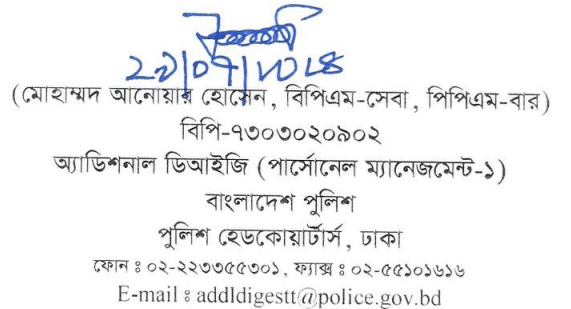 ২১/০৭/২০২৪
(মোহাম্মদ আনোয়ার হোসেন, বিপিএম-সেবা, পিপিএম-বার)
বিপি-৭৩০৩০২০৯০২
অ্যাডিশনাল ডিআইজি (পার্সোনেল ম্যানেজমেন্ট-১)
বাংলাদেশ পুলিশ
পুলিশ হেডকোয়ার্টার্স, ঢাকা
ফোন ঃ ০২-২২৩৩৫৫৩০১, ফ্যাক্স ঃ ০২-৫৫১০১৬১৬
E-mail ঃ addldigestt@police.gov.bd